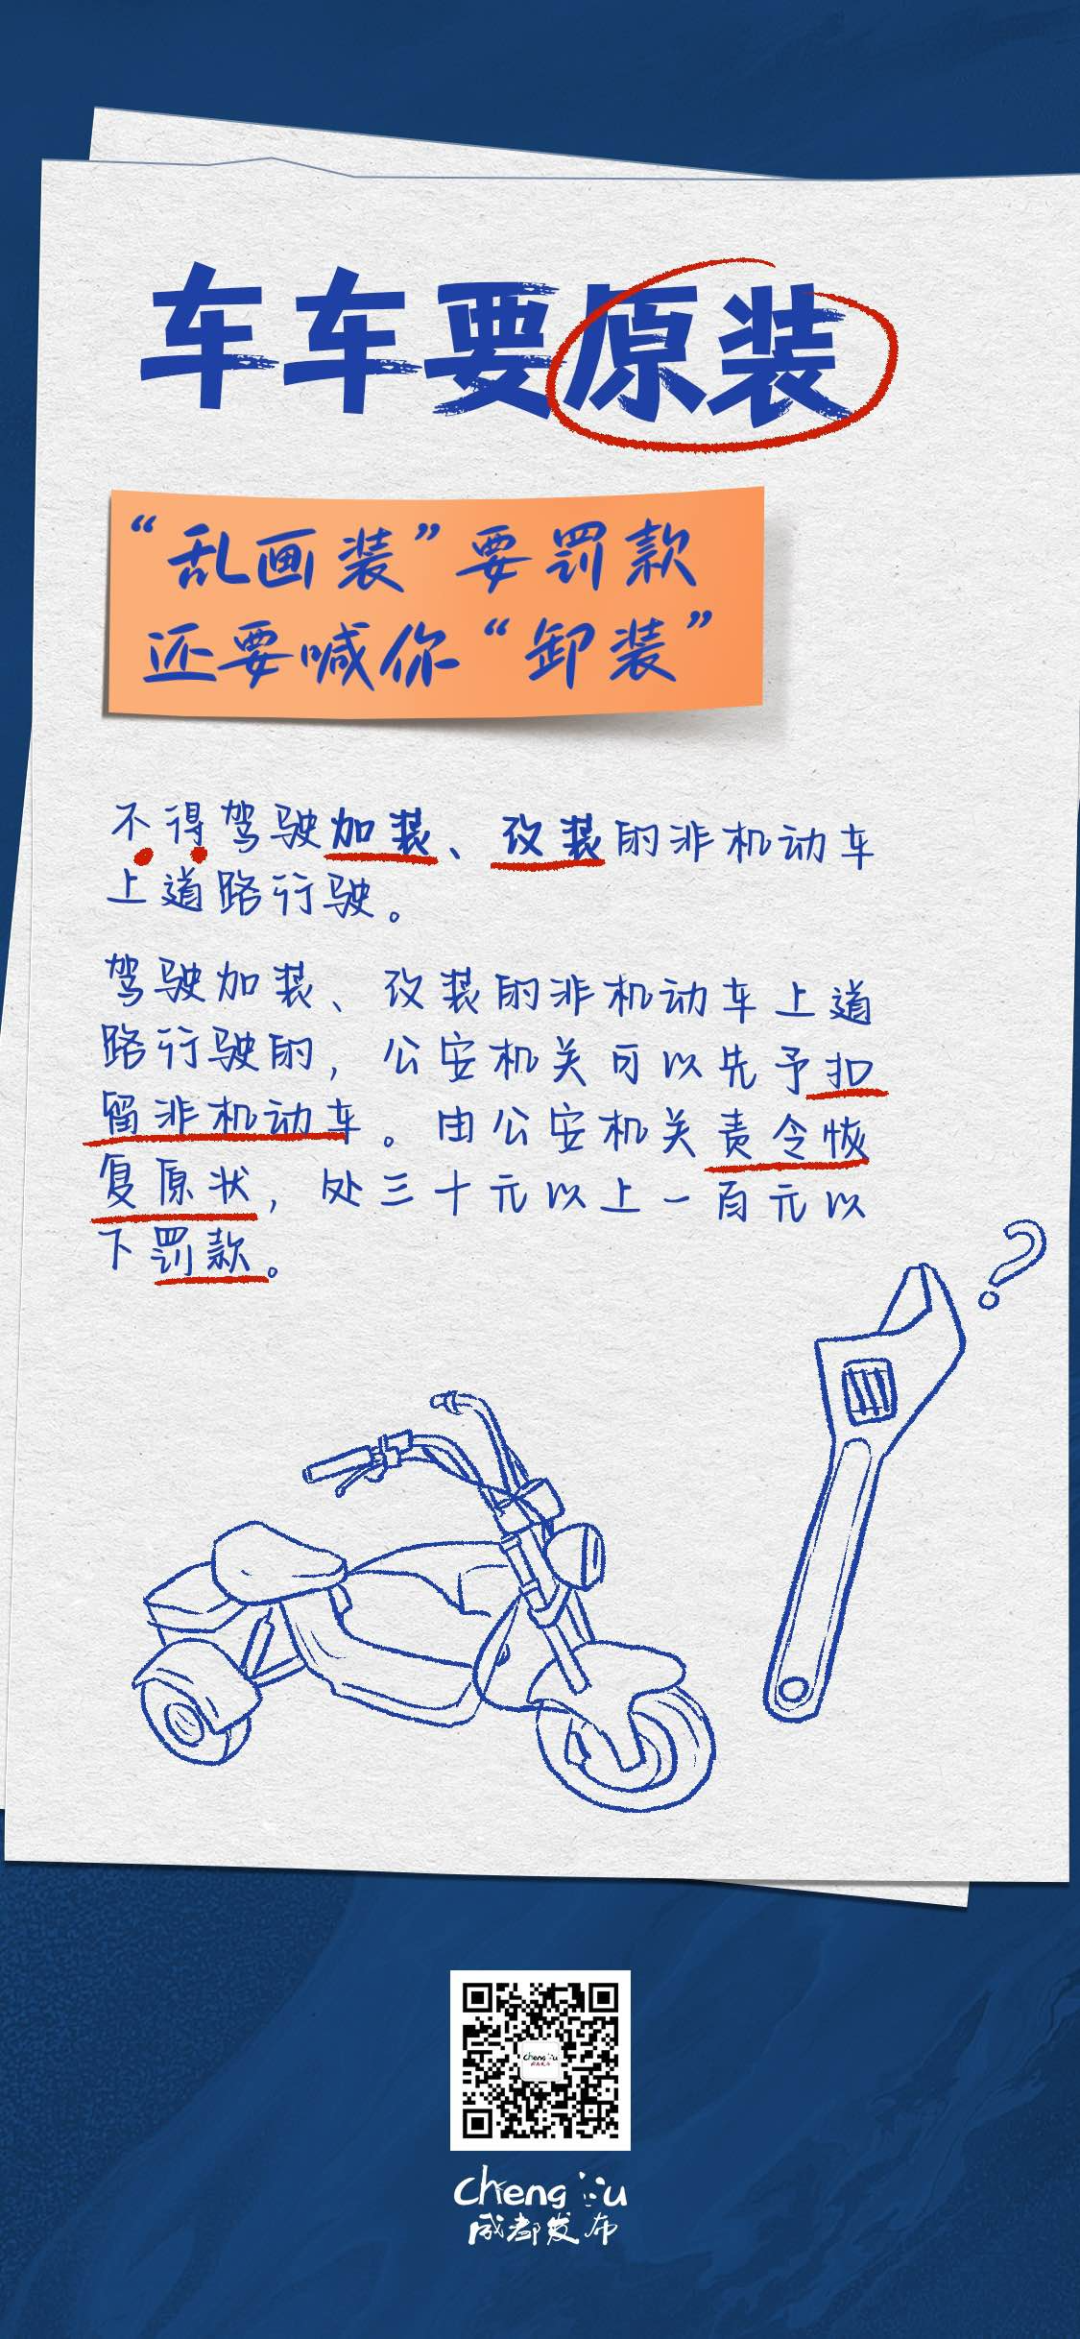 车车要原装
“乱画装”要罚款
还要喊你“卸装”
不得驾驶加装、改装的非机动车
上道路行驶。
驾驶加装、改装的非机动车上道
路行驶的，公安机关可以先予扣
留非机动车。由公安机关责令恢
复原状，处三十元以上一百元以
下罚款。
?
Chengdu
成都发布